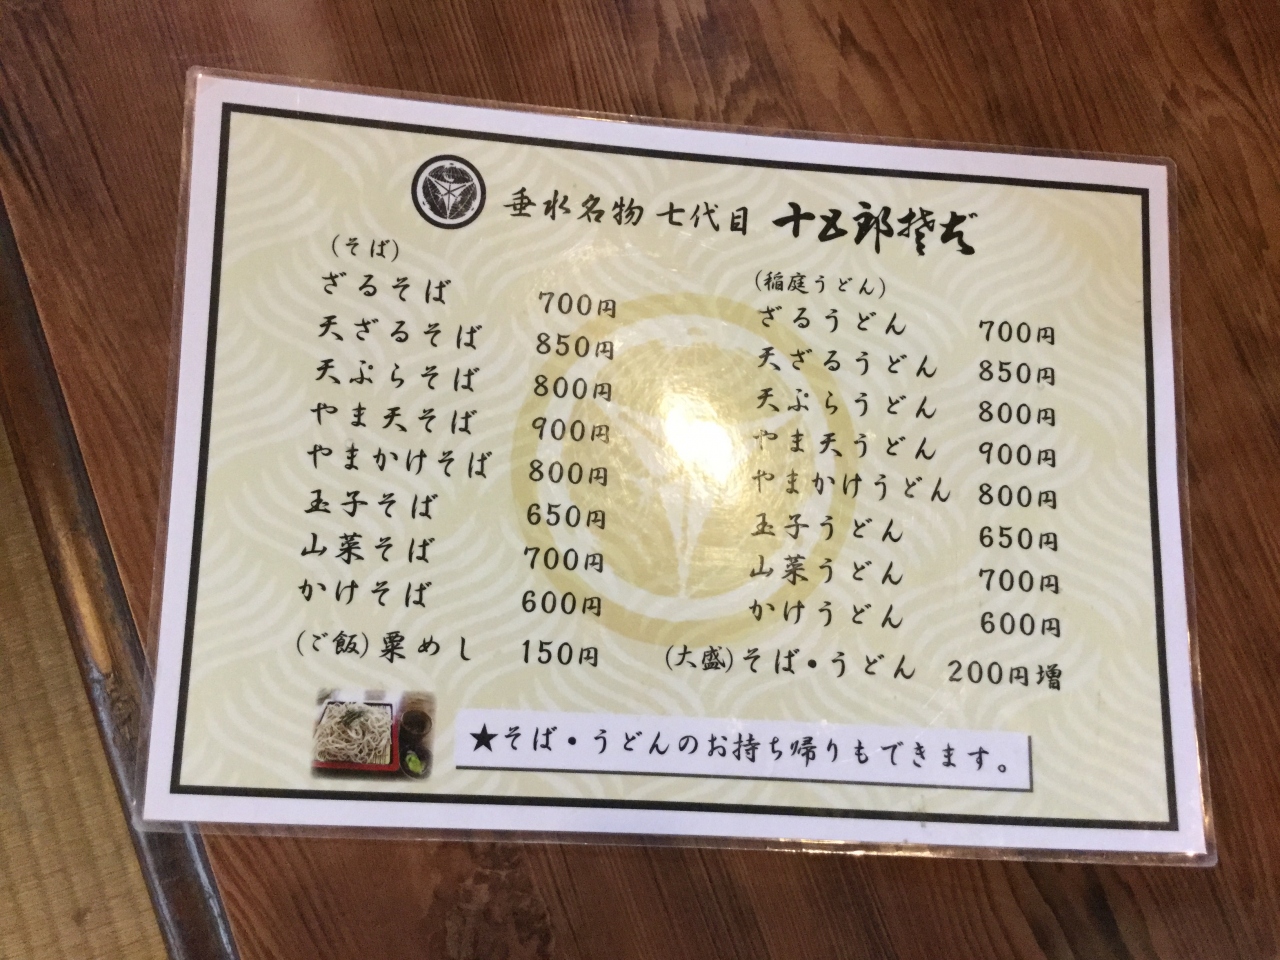 垂水名物 七代目 十五郎そば
(そば)
ざるそば 700円
天ざるそば 850円
天ぷらそば 800円
やま天そば 900円
やまかけそば 800円
玉子そば 650円
山菜そば 700円
かけそば 600円
(ご飯)粟めし 150円
(稲庭うどん)
ざるうどん 700円
天ざるうどん 850円
天ぷらうどん 800円
やま天うどん 900円
やまかけうどん 800円
玉子うどん 650円
山菜うどん 700円
かけうどん 600円
(大盛)そば・うどん 200円増
★そば・うどんのお持ち帰りもできます。